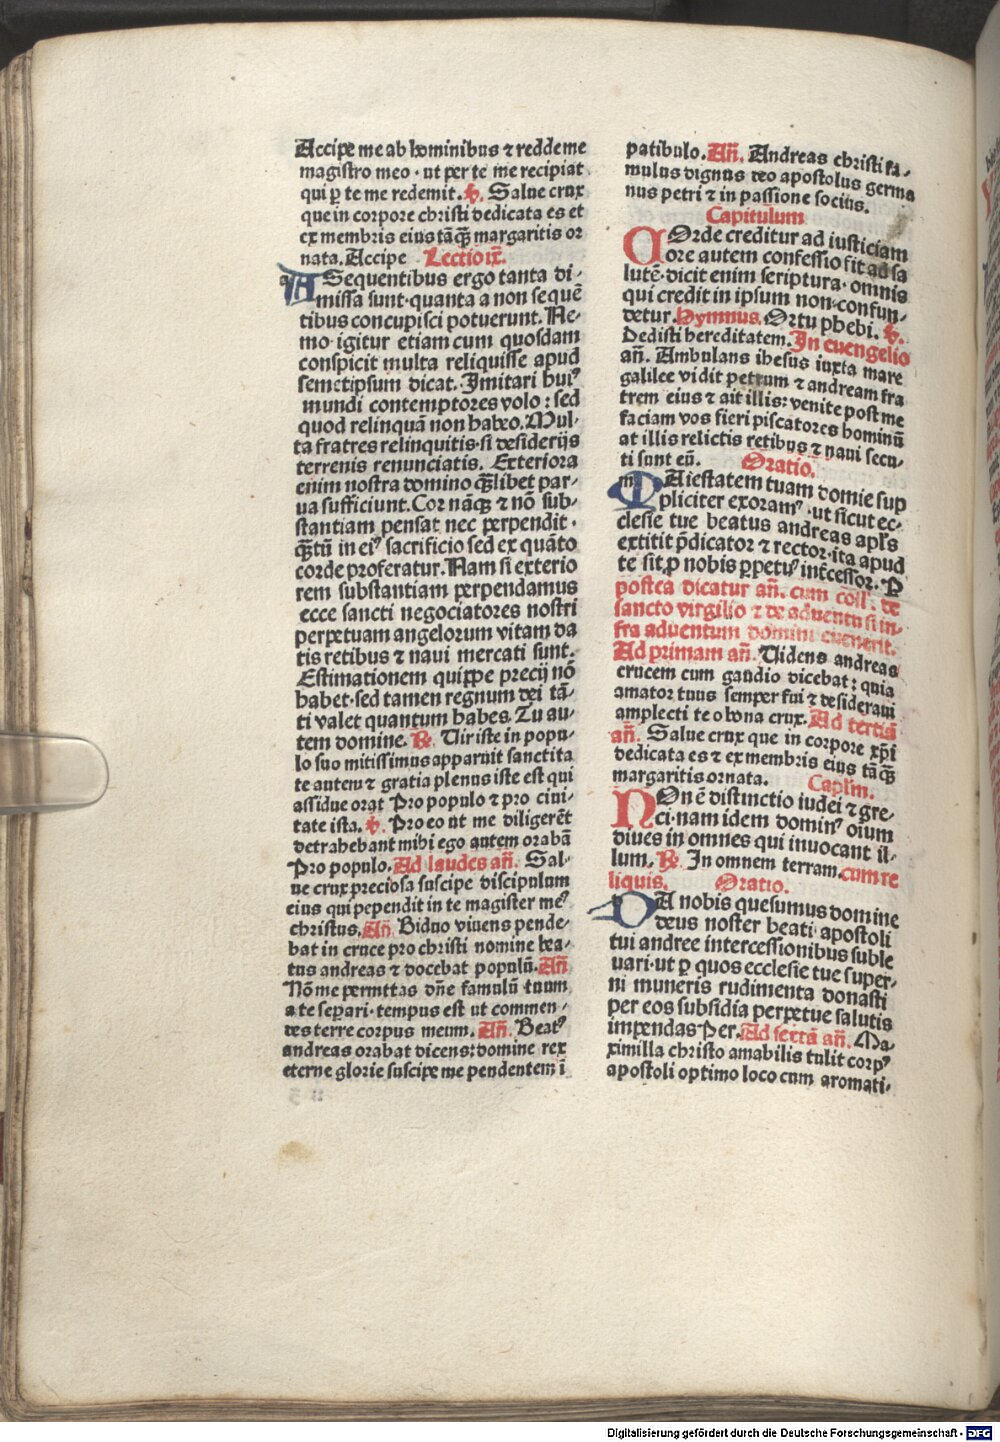 Accipe me ab hominibus ⁊ redde me
magistro meo · ut per te me recipiat
qui ꝑ te me redemit. ℣. Salue crux
que in corpore christi dedicata es et
ex membris eius tāqꝫ margaritis or
nata. Accipe Lectio ix̄.
A Sequentibus ergo tanta di-
missa sunt · quanta a non sequē
tibus concupisci potuerunt. Ne-
mo igitur etiam cum quosdam
conspicit multa reliquisse apud
semetipsum dicat. Imitari huiꝰ
mundi contemptores volo : sed
quod relinquā non habeo. Mul-
ta fratres relinquitis · si desiderijs
terrenis renunciatis. Exteriora
enim nostra domino qꝫlibet par-
ua sufficiunt. Cor nāqꝫ ⁊ nō sub-
stantiam pensat nec perpendit ·
qꝫtū in eiꝰ sacrificio sed ex quāto
corde proferatur. Nam si exterio
rem substantiam perpendamus
ecce sancti negociatores nostri
perpetuam angelorum vitam da
tis retibus ⁊ naui mercati sunt.
Estimationem quippe precij nō
habet · sed tamen regnum dei tā-
ti valet quantum habes. Tu au-
tem domine. ℟. Uir iste in popu-
lo suo mitissimus apparuit sanctita
te autem ⁊ gratia plenus iste est qui
assidue orat Pro populo ⁊ pro ciui-
tate ista. ℣. Pro eo ut me diligerēt
detrahebant mihi ego autem orabā
Pro populo. Ad laudes an̄. Sal-
ue crux preciosa suscipe discipulum
eius qui pependit in te magister meꝰ
christus. An̄ Biduo viuens pende-
bat in cruce pro christi nomine bea-
tus andreas ⁊ docebat populū. An̄
Nō me permittas dn̄e famulū tuum
a te separi · tempus est ut commen-
des terre corpus meum. An̄. Beatꝰ
andreas orabat dicens: domine rex
eterne glorie suscipe me pendentem ī
patibulo. An̄. Andreas christi fa-
mulus dignus deo apostolus germa
nus petri ⁊ in passione socius.
Capitulum
COrde creditur ad iusticiam
ore autem confessio fit ad sa
lutē · dicit enim scriptura · omnis
qui credit in ipsum non confun-
detur. Hymnus. Ortu phebi. ℣.
Dedisti hereditatem. In euengelio
an̄. Ambulans ihesus iuxta mare
galilee vidit petrum ⁊ andream fra
trem eius ⁊ ait illis: venite post me
faciam vos fieri piscatores hominū
at illis relictis retibus ⁊ naui secu-
ti sunt eū. Oratio.
MAiestatem tuam domie sup
pliciter exoramꝰ · ut sicut ec-
clesie tue beatus andreas apl̄s
extitit p̄dicator ⁊ rector · ita apud
te sit ꝓ nobis ꝑpetuꝰ int̄cessor. P
postea dicatur an̄. cum coll̄. de
sancto virgilio ⁊ de aduentu si in-
fra aduentum domini euenerit.
Ad primam an̄. Uidens andreas
crucem cum gaudio dicebat : quia
amator tuus semper fui ⁊ desideraui
amplecti te o bona crux. Ad tertiā
an̄. Salue crux que in corpore xp̄i
dedicata es ⁊ ex membris eius tāqꝫ
margaritis ornata. Capl̄m.
NOn ē distinctio iudei ⁊ gre-
ci · nam idem dominꝰ oīum
diues in omnes qui inuocant il-
lum. ℟. In omnem terram. cum re
liquis. Oratio.
DA nobis quesumus domine
deus noster beati apostoli
tui andree intercessionibus suble
uari · ut ꝑ quos ecclesie tue super-
ni muneris rudimenta donasti
per eos subsidia perpetue salutis
impendas Per. Ad sextā an̄. Ma-
ximilla christo amabilis tulit corpꝰ
apostoli optimo loco cum aromati-
Digitalisierung gefördert durch die Deutsche Forschungsgemeinschaft - DFG